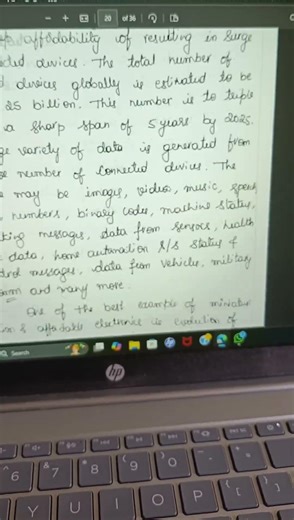 20 of 36
affordability of resulting in Surge
cted devices. The total number of
d devices globally is estimated to be
25 billion. This number is to tuple
a sharp span of 5 years by 2025.
ge variety of data is generated from
ge number of Connected devices. The
may be images, videos, music, speech
numbers, binary codes, machine status,
king messages, data from sensors, health
data, home automation R/s status &
trol messages, data from vehicles, military
and many more.
One of the best example of miniatur
tion & affordable electronics is evolution of
Search
hp
6 & 7 * 8 ( 9 ) 0
Y U I O P { [ } ]